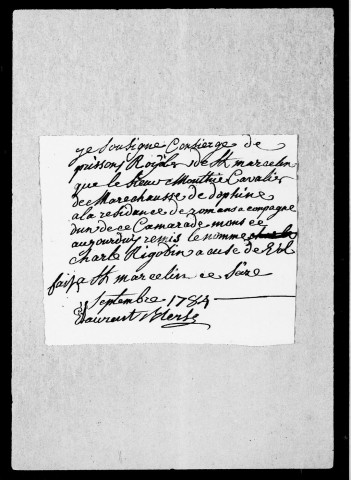 ye Sousigne Consierge de
prissons Royales de St marcelin
que le sieur Monthie Cavalier
de Marechausse de dophine
a la residance de romans acompagne
dun de ce Camarade mons ce
aujourduy remis le nomme
charle Rigodin acuse de
fait a St marcelin ce Seize
Septembre 1784
Laurent